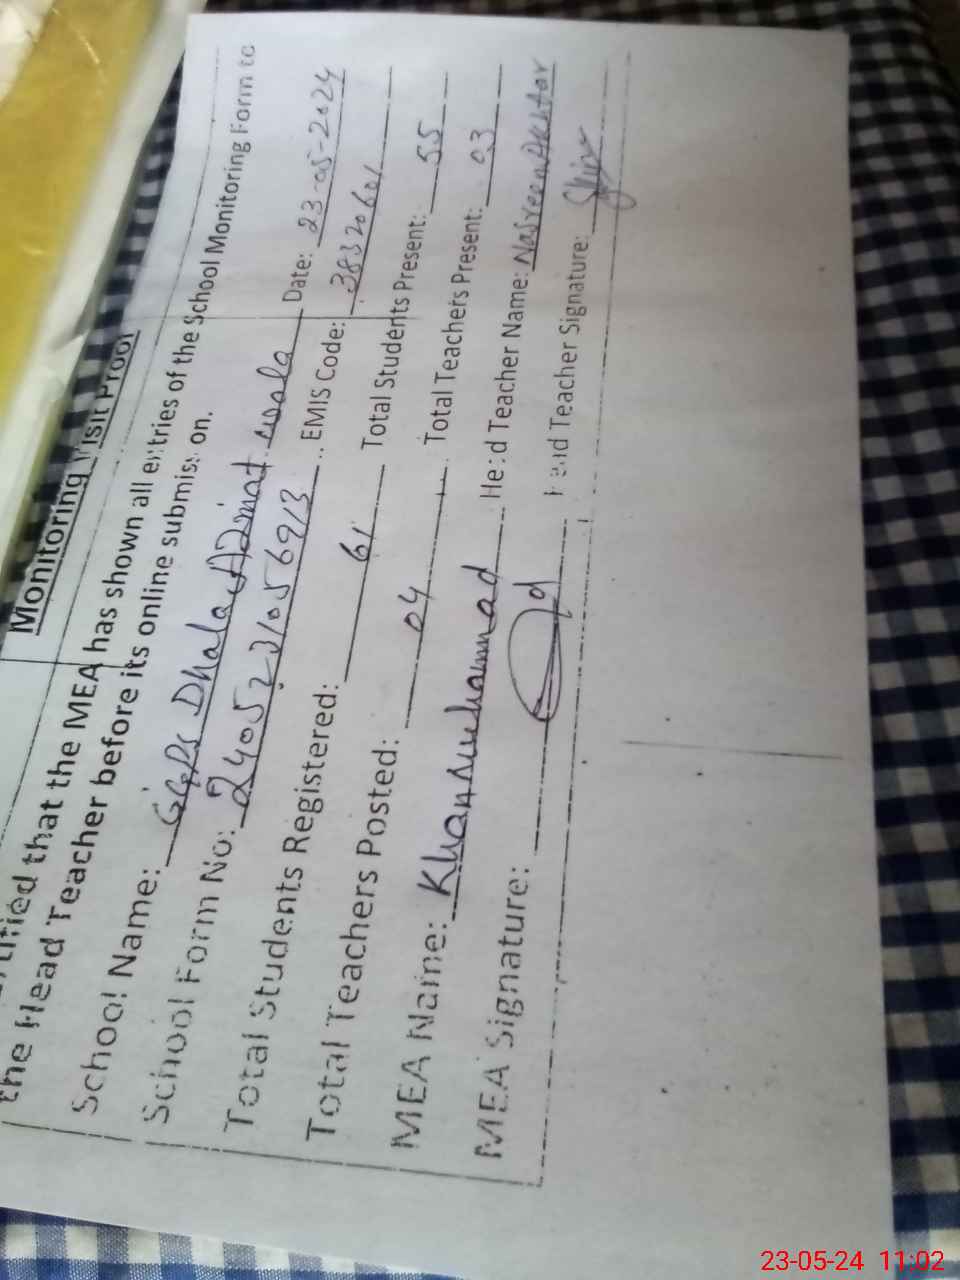 Monitoring Visit Proof
that the MEA has shown all entries of the School Monitoring Form to
the Head Teacher before its online submission.
School Name: GGPS Dhala Azmat wala Date: 23-05-2024
School Form No: 2405231056913 EMIS Code: 38320601
Total Students Registered: 61 Total Students Present: 55
Total Teachers Posted: 04 Total Teachers Present: 03
MEA Name: Khan Muhammad Head Teacher Name: Nasreen Akhtar
MEA Signature: Head Teacher Signature:
23-05-24 11:02